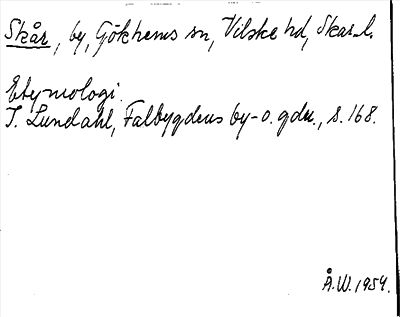 Skår, by, Gökhems sn, Vilske hd, Skar. l.
Etymologi.
I. Lundahl, Falbygdens by- o. gdn., s. 168.
Å.W. 1954.